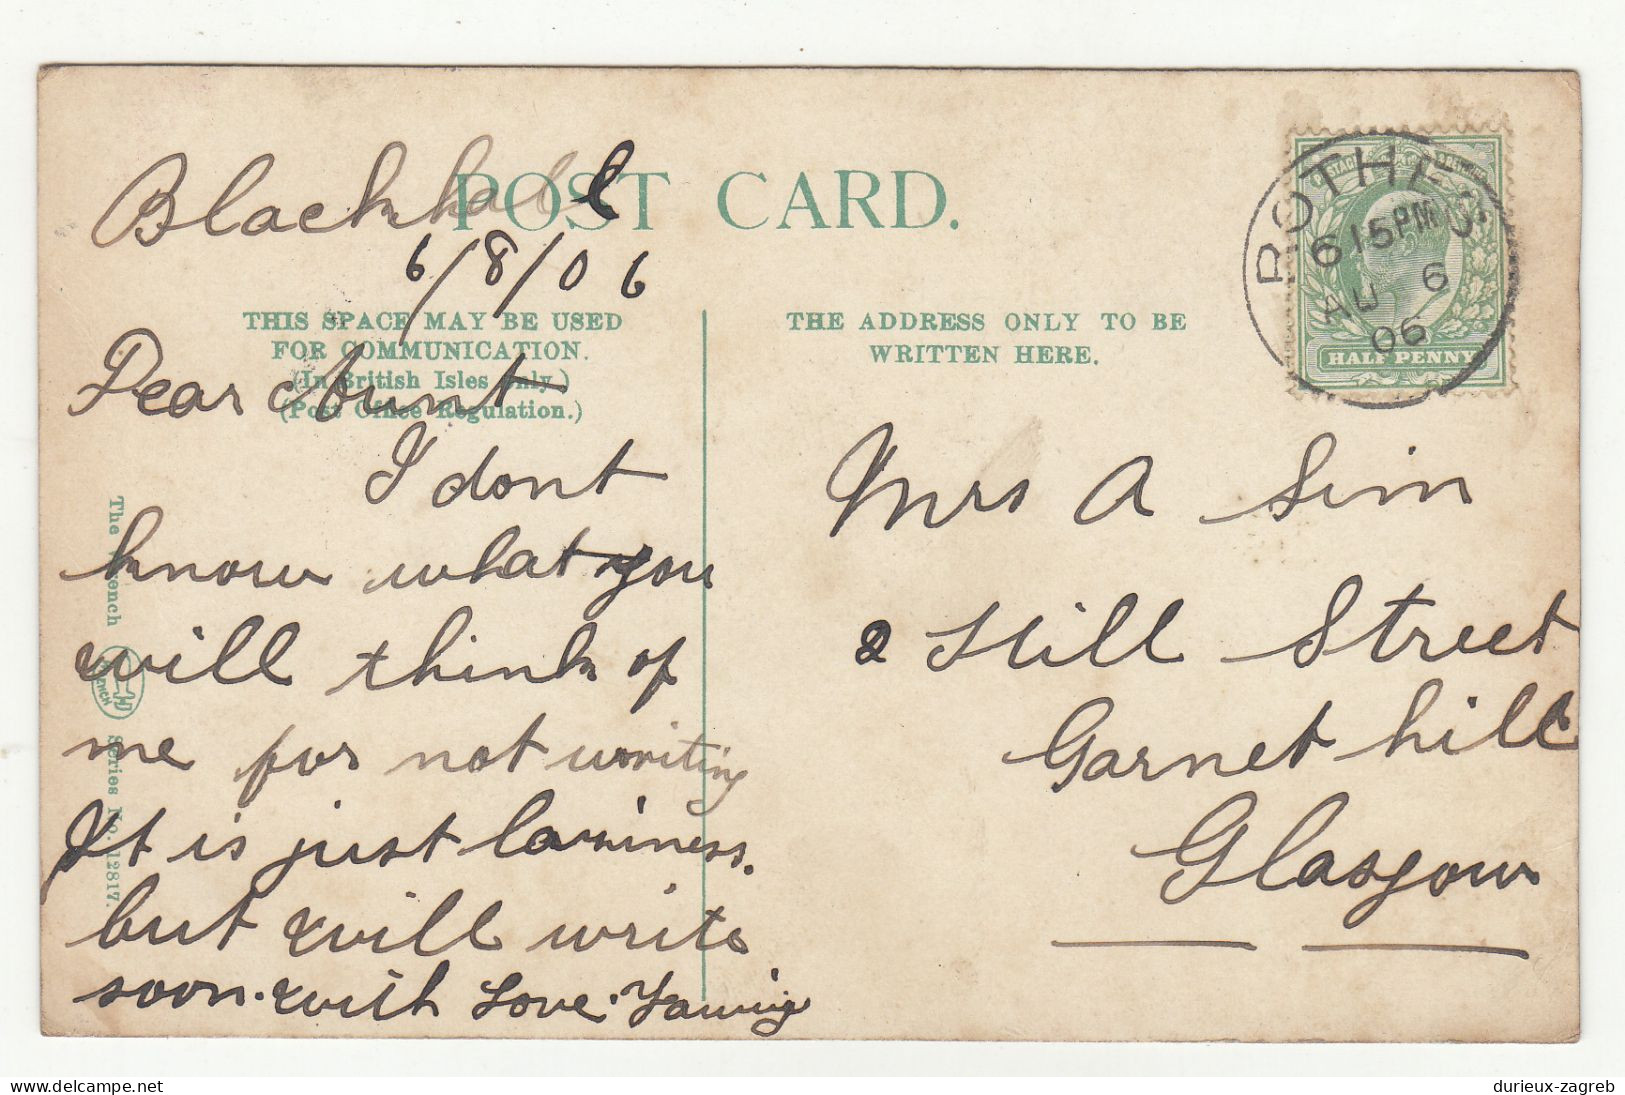 POST CARD.
Blackhall
6/8/06
THIS SPACE MAY BE USED
FOR COMMUNICATION.
(In British Isles only.)
(Post Office Regulation.)
Dear Aunt
I dont
know what you
will think of
me for not writing
It is just laziness.
but will write
soon. with Love.
The French
Series No. 12817.
THE ADDRESS ONLY TO BE
WRITTEN HERE.
ROTHES
615PM
AU 6
06
HALFPENNY
Mrs A Sim
2 Hill Street
Garnet hill
Glasgow
durieux-zagreb